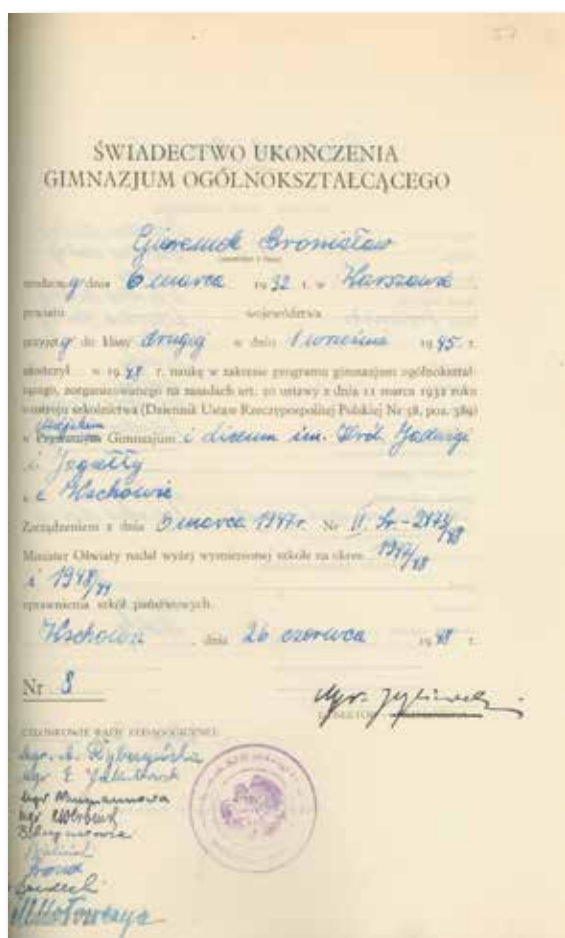 57
ŚWIADECTWO UKOŃCZENIA
GIMNAZJUM OGÓLNOKSZTAŁCĄCEGO
Gieremek Bronisław
(nazwisko i imię)
urodzony dnia 6 marca 1932 r. w Warszawie
powiatu województwa
przyjęty do klasy drugiej w dniu 1 września 1945 r.
ukończył w 1948 r. naukę w zakresie programu gimnazjum ogólnokształ-
cącego, zorganizowanego na zasadach art. 20 ustawy z dnia 11 marca 1932 roku
o ustroju szkolnictwa (Dziennik Ustaw Rzeczypospolitej Polskiej Nr 38, poz. 389)
w Miejskim Prywatnym Gimnazjum i Liceum im. Król. Jadwigi
i Jagiełły
we Wschowie
Zarządzeniem z dnia 6 marca 1947 r. Nr II. Śr.-2873/48
Minister Oświaty nadał wyżej wymienionej szkole na okres 1947/48
i 1948/49
uprawnienia szkół państwowych.
Wschowa, dnia 26 czerwca 1948 r.
Nr 8
Mgr.
DYREKTOR
CZŁONKOWIE RADY PEDAGOGICZNEJ:
Mgr. A. Rybczyńska
Mgr E.
Mgr Naumannowa
Mgr
Hołowczyc